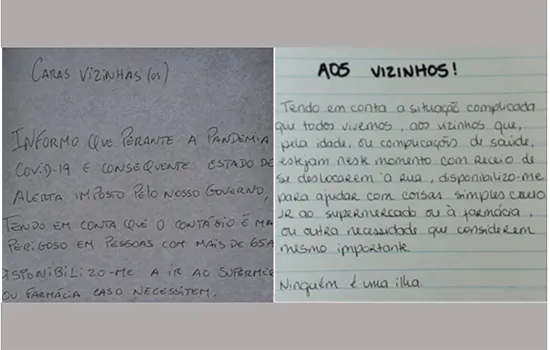 CARAS VIZINHAS (OS)
INFORMO QUE PERANTE A PANDEMIA
COVID-19 E CONSEQUENTE ESTADO DE
ALERTA IMPOSTO PELO NOSSO GOVERNO,
TENDO EM CONTA QUE O CONTÁGIO É MA
PERIGOSO EM PESSOAS COM MAIS DE 65A
DISPONIBILIZO-ME A IR AO SUPERME
OU FARMÁCIA CASO NECESSITEM.
AOS VIZINHOS!
Tendo em conta a situação complicada
que todos vivemos, aos vizinhos que,
pela idade, ou complicações de saúde,
estejam neste momento com receio de
se deslocarem à rua, disponibilizo-me
para ajudar com coisas simples como
ir ao supermercado ou à farmácia,
ou outra necessidade que considerem
mesmo importante.
Ninguém é uma ilha